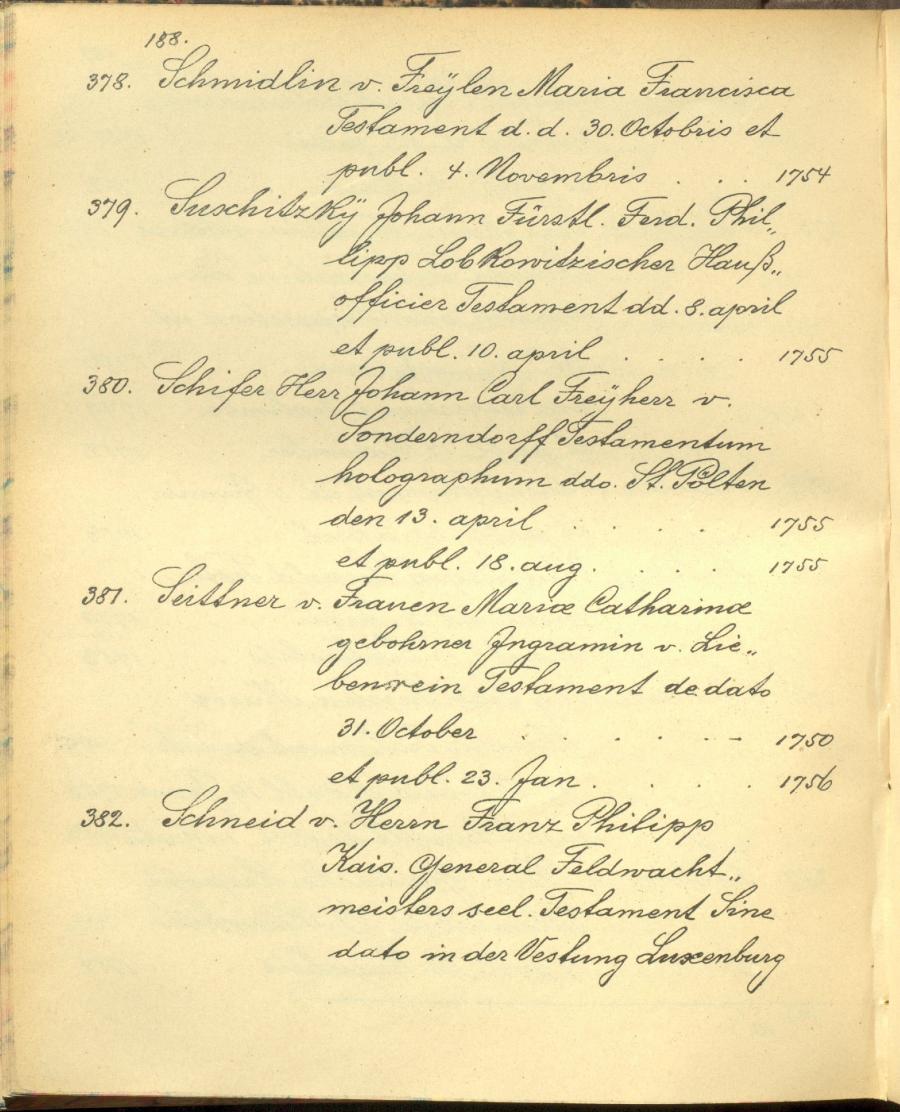 188.
378. Schmidlin v. Freÿlen Maria Francisca
Testament d. d. 30. Octobris et
publ. 4. Novembris . . . 1754
379. Suschitzkÿ Johann Fürstl. Ferd. Phil„
lipp Lobkowitzischer Hauß„
officier Testament dd. 8. april
et publ. 10. april . . . . 1755
380. Schifer Herr Johann Carl Freÿherr v.
Sonderndorff Testamentum
holographum ddo. St. Pölten
den 13. april . . . . 1755
et publ. 18. aug. . . . . 1755
381. Seittner v. Frauen Mariæ Catharinæ
gebohrner Ingramin v. Lie„
benrein Testament de dato
31. October . . . . . – 1750
et publ. 23. Jan . . . . . 1756
382. Schneid v. Herrn Franz Philipp
Kais. General Feldwacht„
meisters seel. Testament Sine
dato in der Vestung Luxenburg